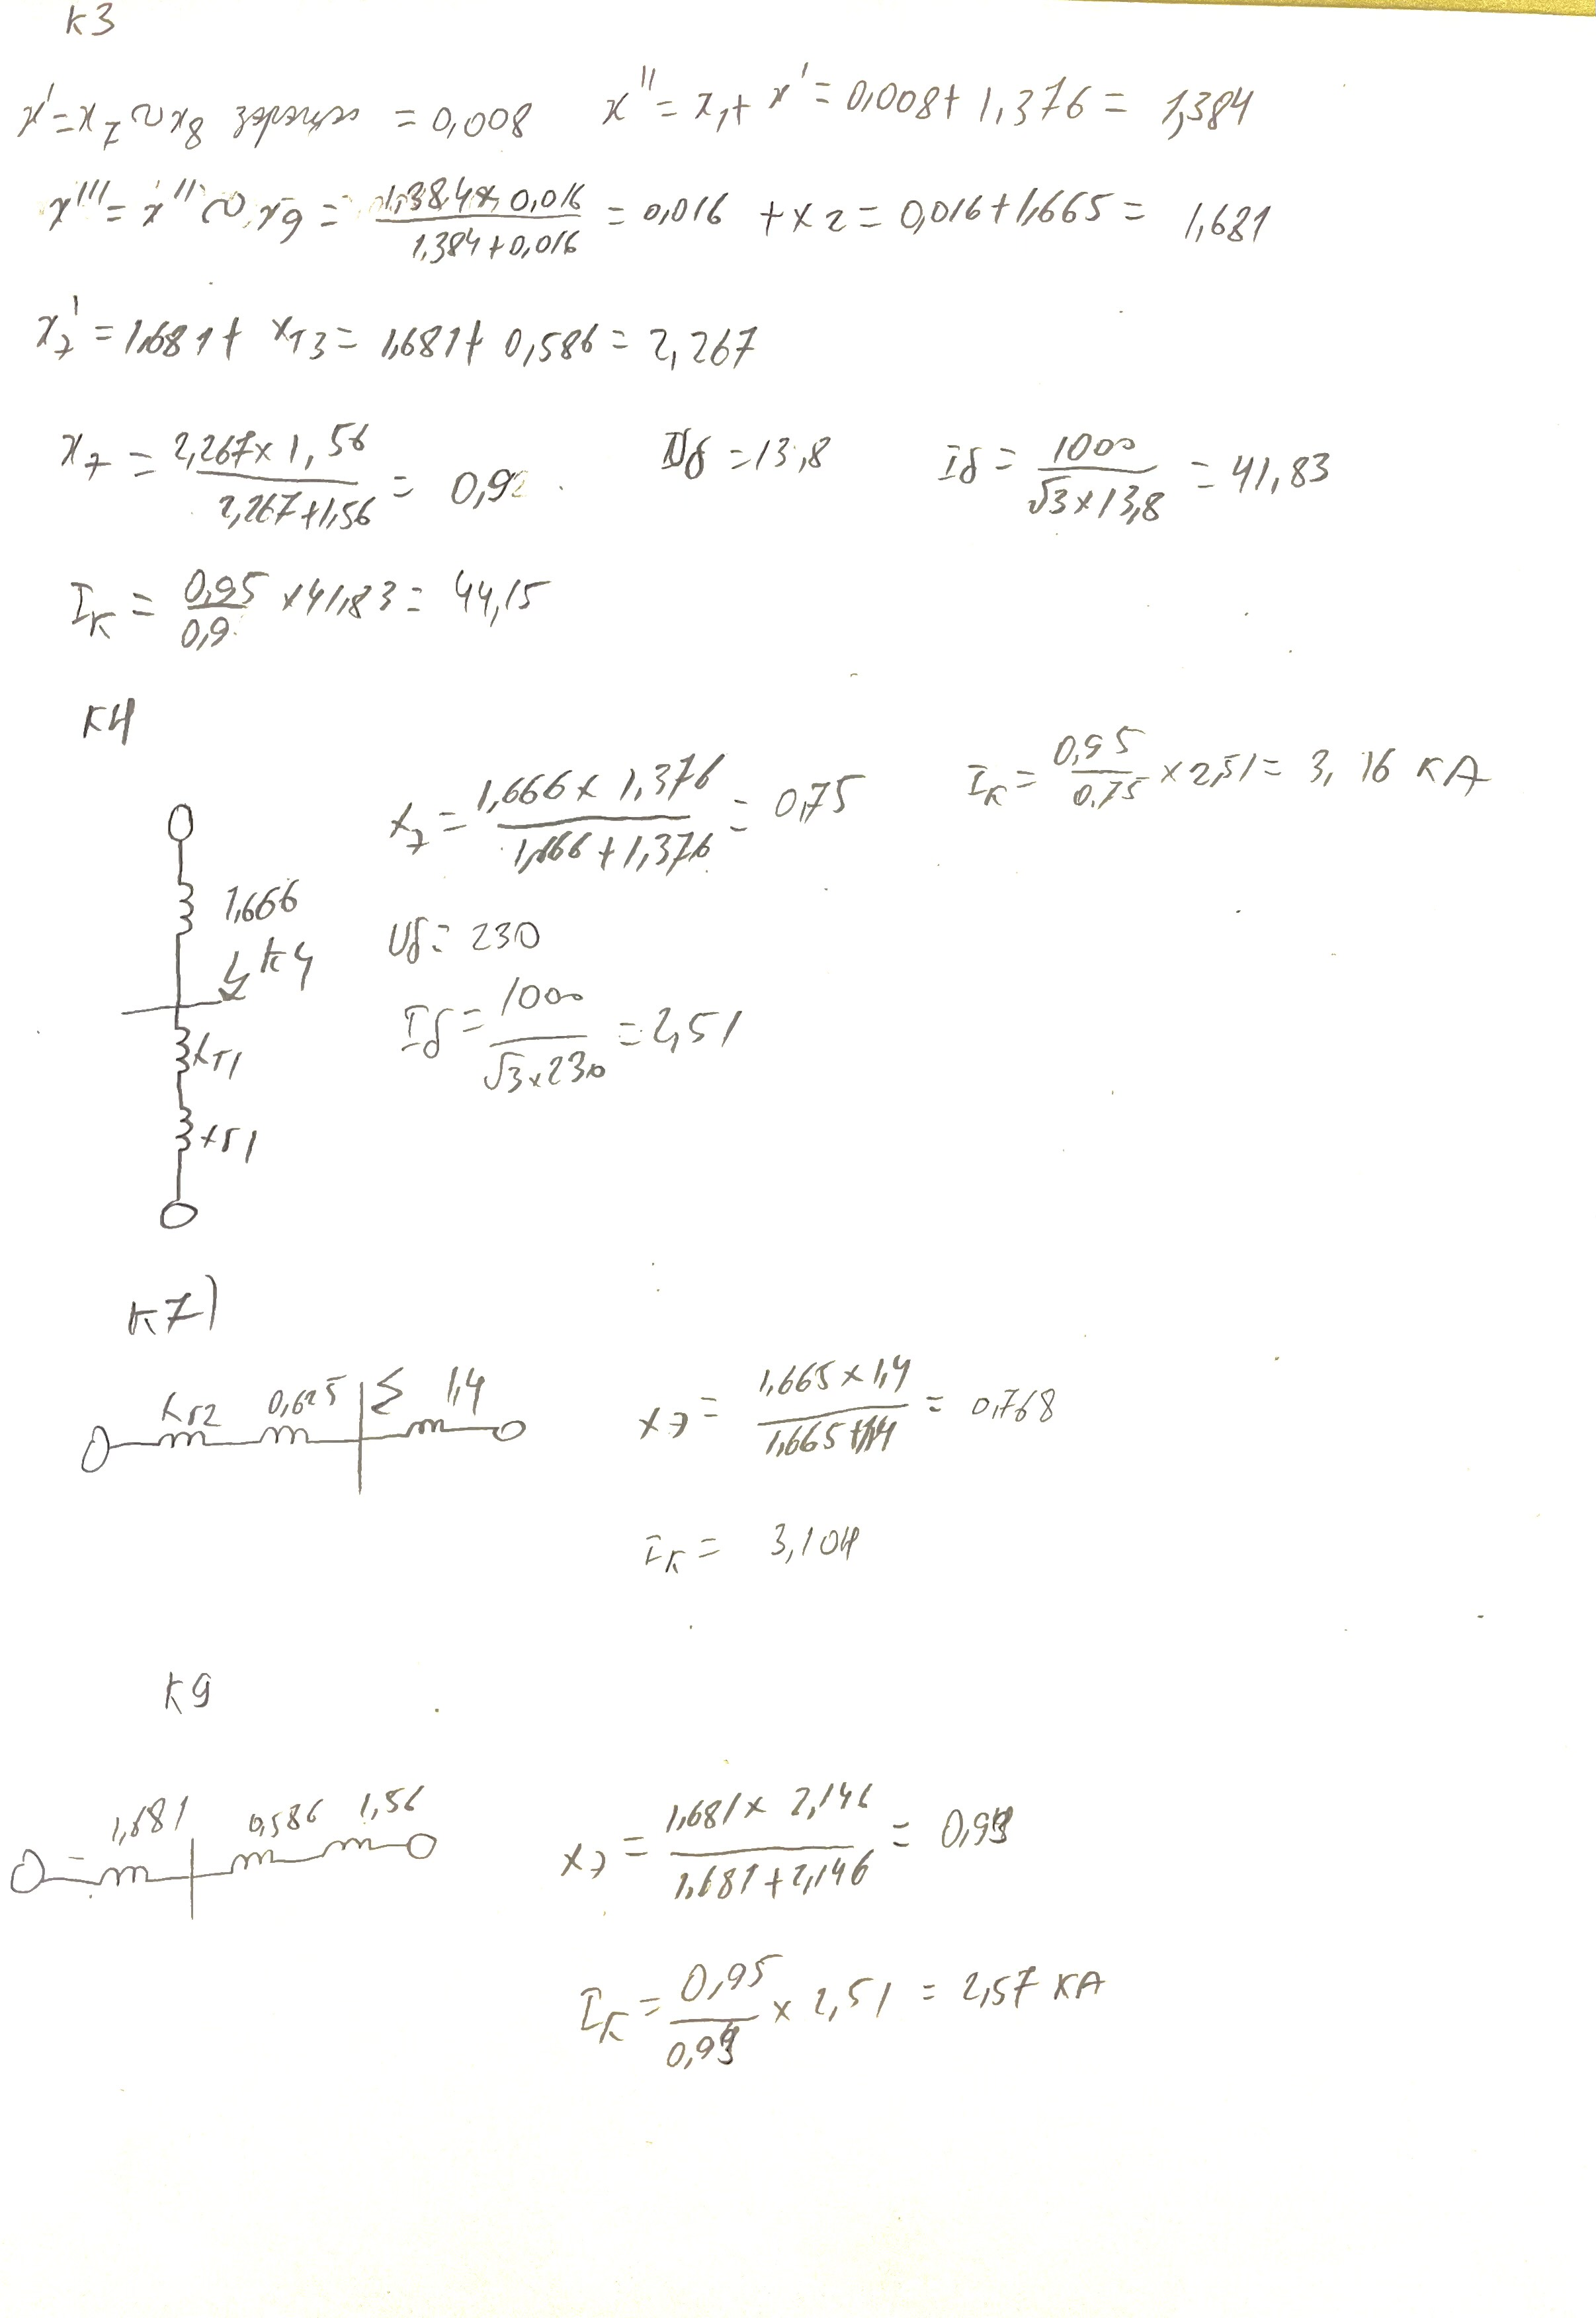 К3
x' = x7 ∾ x8 зэрэгцээ = 0,008   x'' = x1 + x' = 0,008 + 1,376 = 1,384
x''' = x'' ∾ x9 = (1,384 x 0,016)/(1,384 + 0,016) = 0,016 + x2 = 0,016 + 1,665 = 1,681
xэ' = 1,681 + xт3 = 1,681 + 0,586 = 2,267
xэ = (2,267 x 1,56)/(2,267 + 1,56) = 0,92   Uб = 13,8   Iб = 1000/(√3 x 13,8) = 41,83
Iк = 0,95/0,9 x 41,83 = 44,15
К4
xэ = (1,666 x 1,376)/(1,666 + 1,376) = 0,75   Iк = 0,95/0,75 x 2,51 = 3,16 КА
1,666
К4
Uб = 230
Iб = 1000/(√3 x 230) = 2,51
xт1
xг1
К7)
xг2 0,625 1,4
xэ = (1,665 x 1,4)/(1,665 + 1,4) = 0,768
Iк = 3,104
К9
1,681 0,586 1,56
xэ = (1,681 x 2,146)/(1,681 + 2,146) = 0,93
Iк = 0,95/0,93 x 2,51 = 2,57 КА